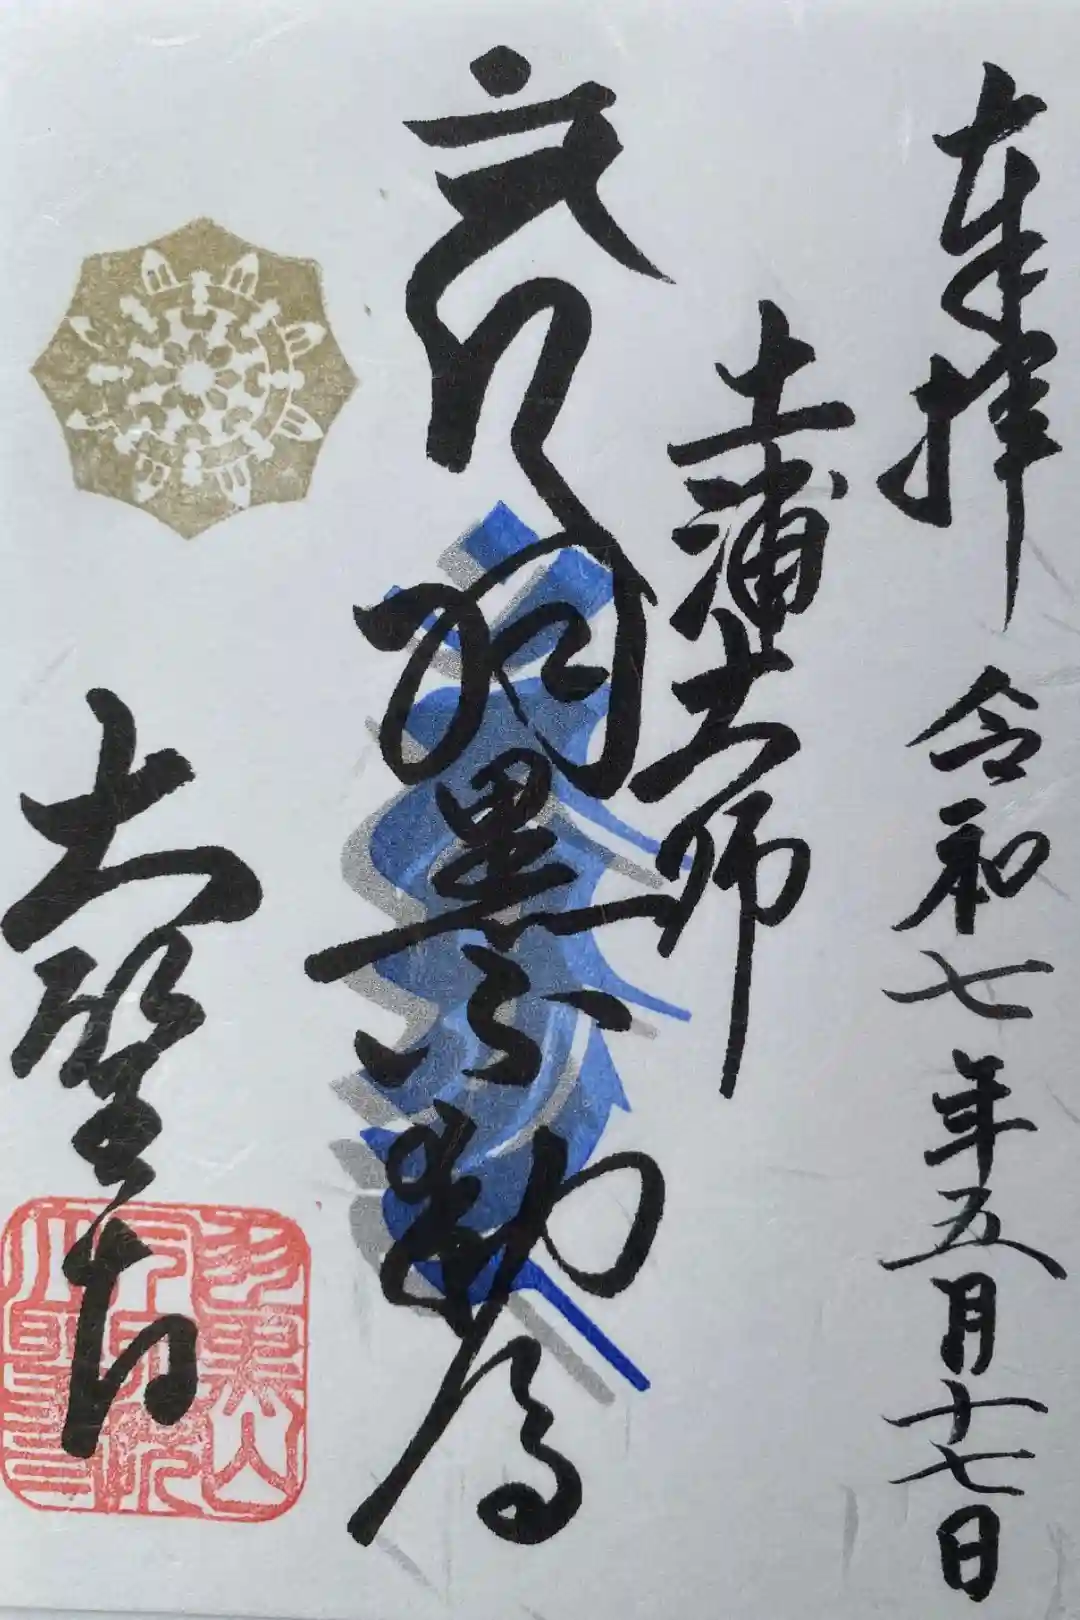 奉拝 令和七年五月十七日
土浦大師
羽黒不動尊
大聖寺